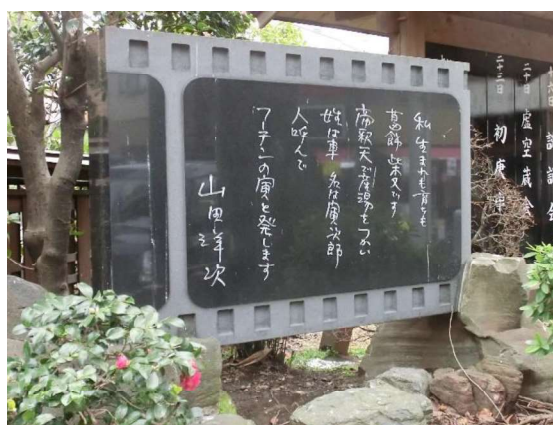 私 生まれも育ちも
葛飾 柴又です
帝釈天で産湯をつかい
姓は車 名は寅次郎
人呼んで
フーテンの寅と発します
山田洋次
二十日 虚空蔵会
二十三日 初庚申